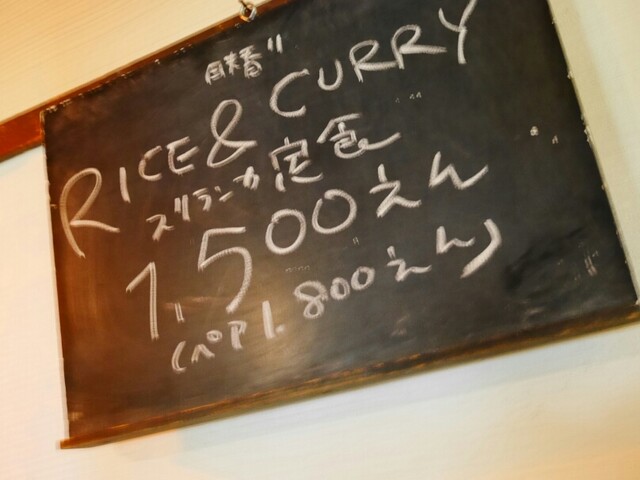 日替り
RICE & CURRY
スリランカ定食
1,500えん
(ペア 1.800えん)